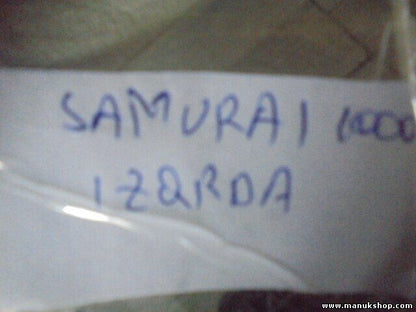 SAMURAI 1000
IZQRDA
www.manukshop.com